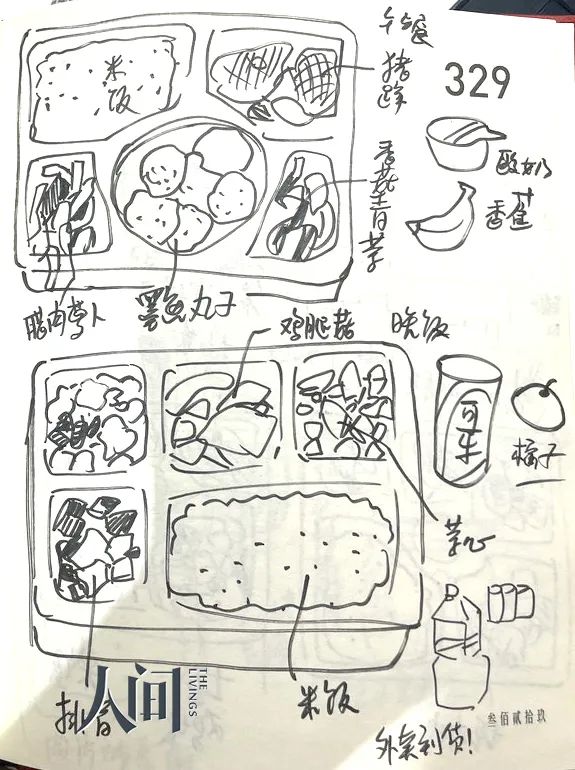 午餐
米饭
猪蹄
329
酸奶
香蕉
香菇青菜
腊肉萝卜
墨鱼丸子
鸡腿菇
晚饭
可乐
橘子
菜心
排骨
人间
THE LIVINGS
米饭
叁佰贰拾玖
外卖到货!